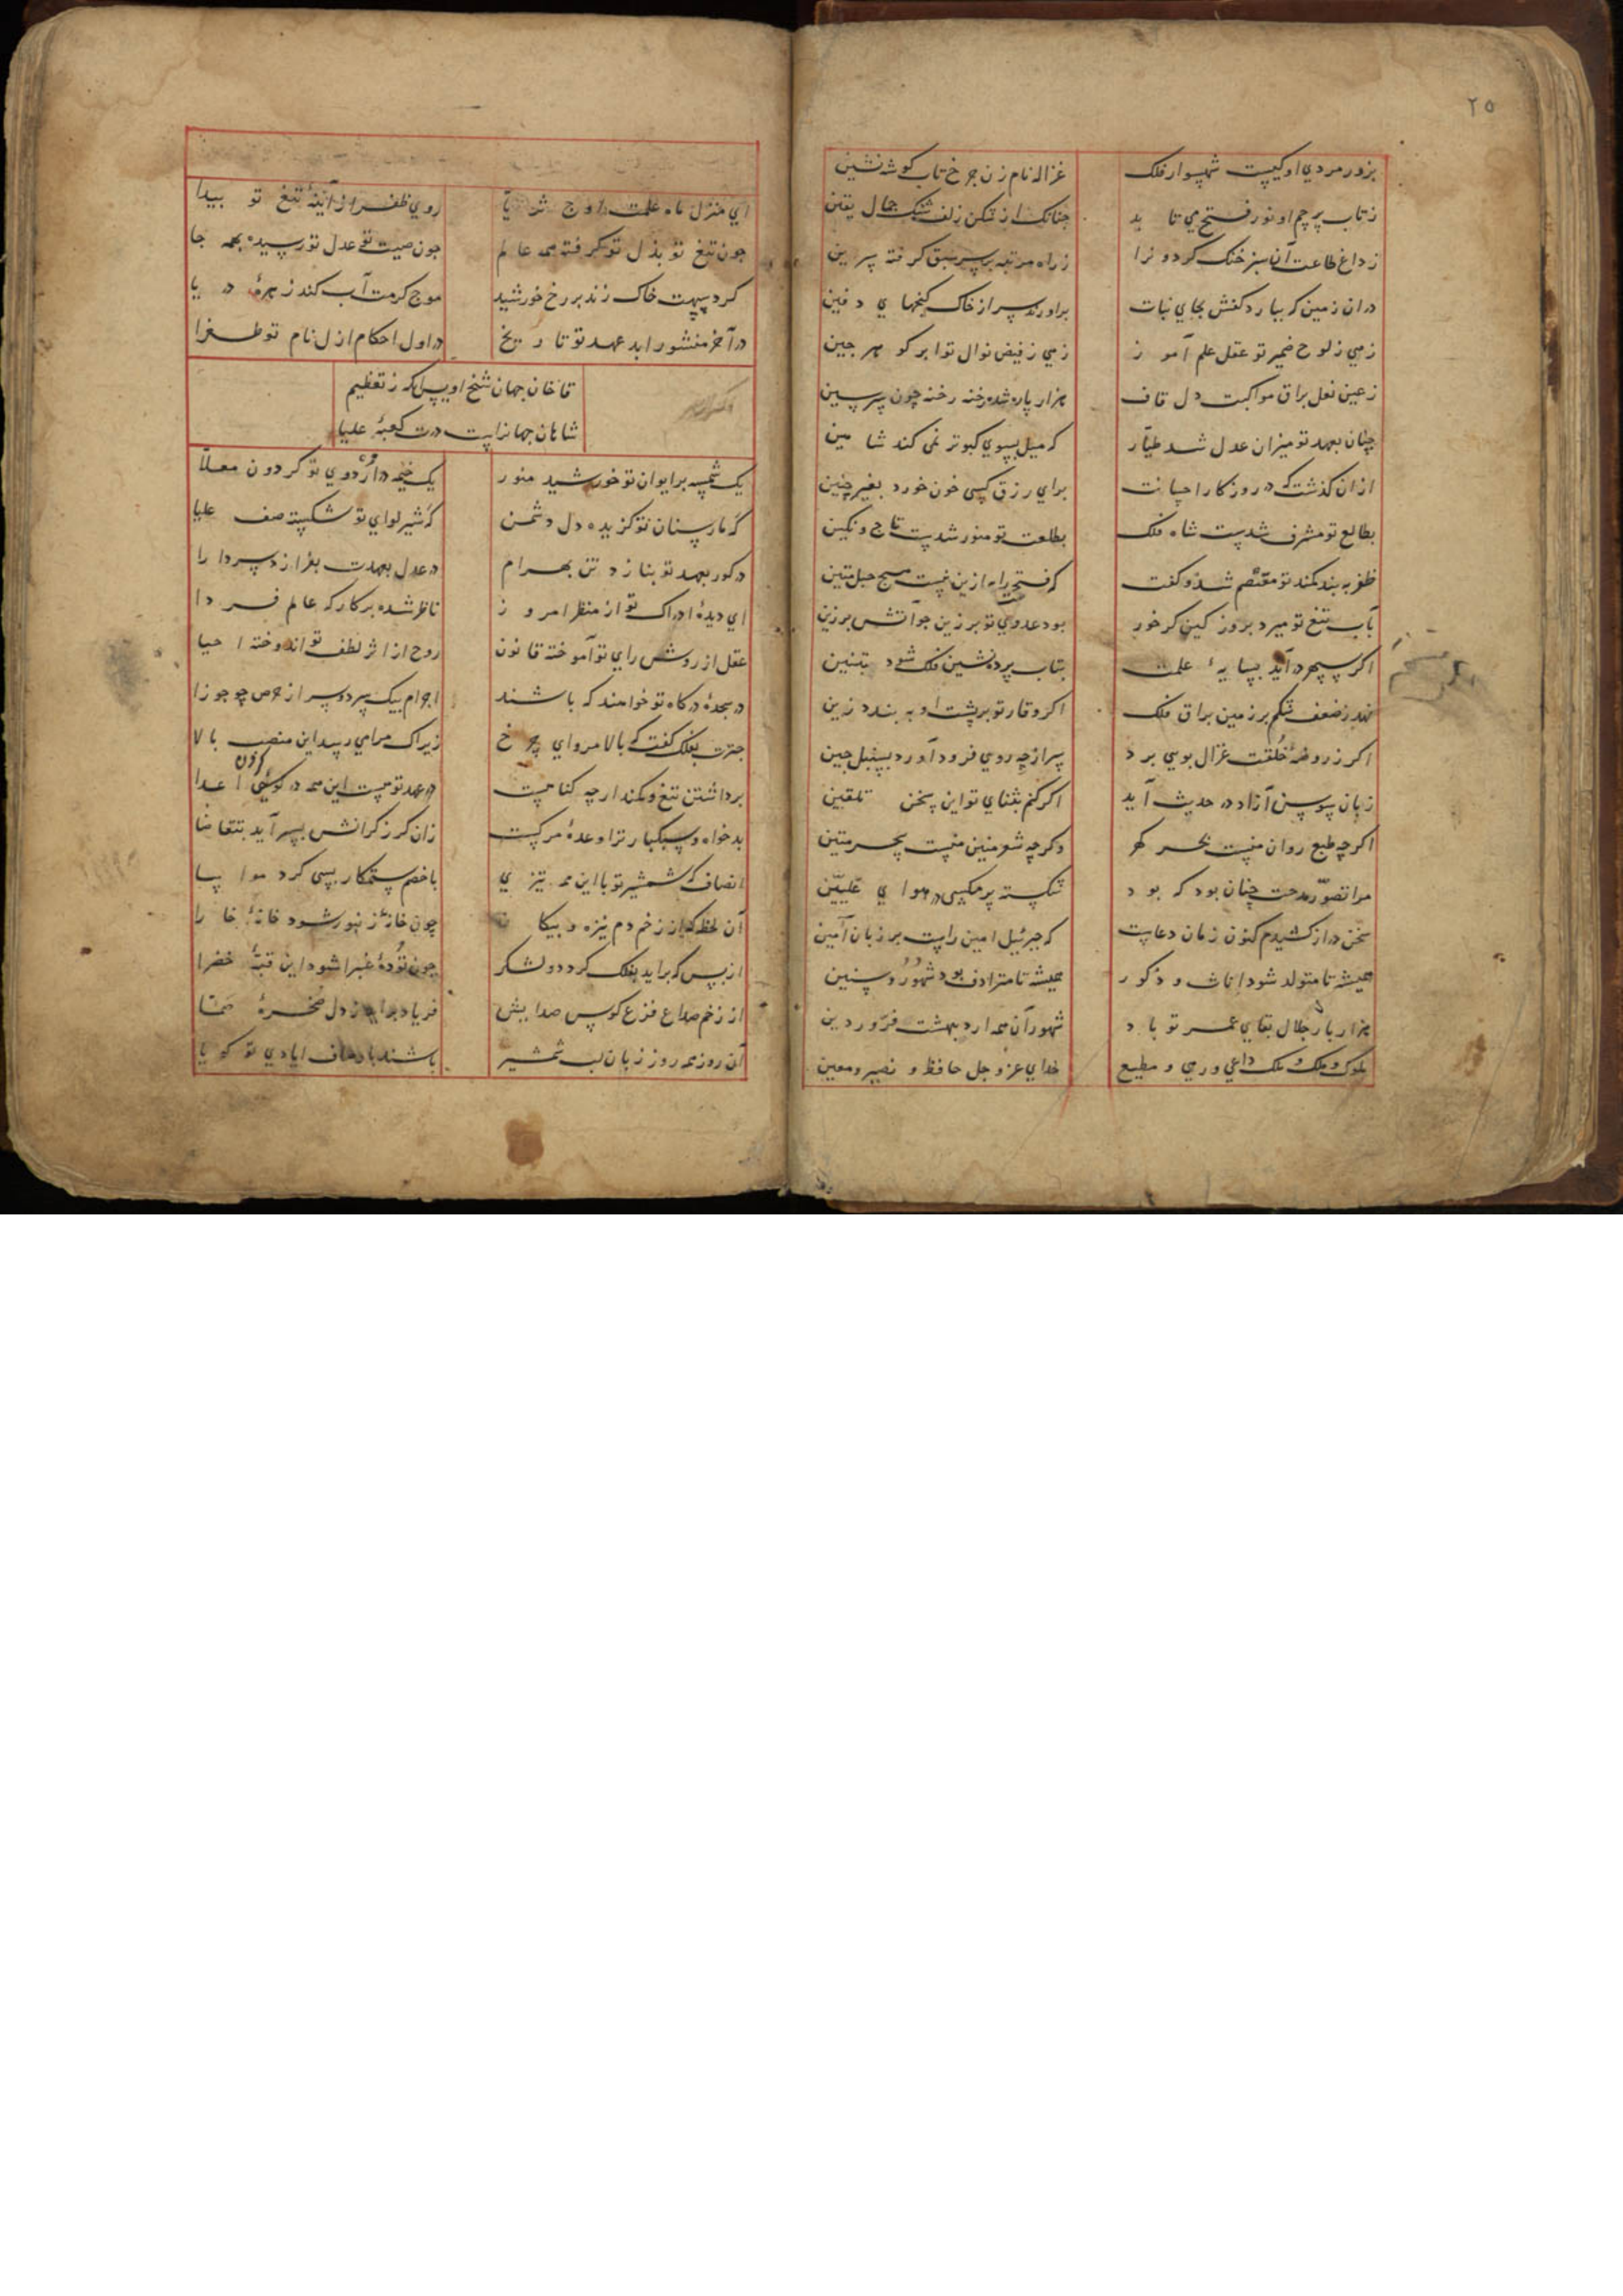 ۲۵
بزور مردی او کیست شهسوار فلک غزاله نام زن چرخ تاب گوشه نشین
ز تاب پرچم او نور فتح می تابد چنانک از شکن زلف شک جمال یقین
ز داغ طاعت آن سبز خنک گردون را ز راه مرتبه بر سر سبق گرفته سرین
در ان زمین که ببارد کفش بجای نبات براورند سر از خاک گنجهای دفین
زهی ز لوح ضمیر تو عقل علم آموز زهی ز فیض نوال تو ابر گوهر چین
ز عین نعل براق مواکبت دل قاف هزار پاره شده رخنه رخنه چون سر سین
چنان بعهد تو میزان عدل شد طیّار که میل بسوی کبوتر نمی کند شاهین
از ان گذشت که در روزگار احسانت برای رزق کسی خون خورد بغیر جنین
بطالع تو مشرف شدست شاه فلک بطلعت تو منور شدست تاج و نگین
ظفر به بند کمند تو معتصم شد و گفت که فتح را به ازین نیست هیچ حبل متین
بآب تیغ تو میرد بروز کین گر خور بود عدوی تو برزین چو آتش برزین
اگر سپهر درآید بسایهٔ علمت بتاب پرده نشین فلک شود تنین
نهد ز ضعف شکم بر زمین براق فلک اگر وقار تو بر پشت او به بندد زین
اگر ز روضهٔ خلقت غزال بویی برد سر از چه روی فرود آورد بسنبل چین
زبان سوسن آزاد در حدیث آید اگر کنم بثنای تو این سخن تلقین
اگرچه طبع روان منست بحر گهر و گرچه شعر متین منست سحر متین
مرا تصوّر مدحت چنان بود که بود شکسته پر مگسی در هوای علیّین
سخن دراز کشیدم کنون زمان دعاست که جبرئیل امین راست بر زبان آمین
همیشه تا متولد شود اناث و ذکور همیشه تا مترادف بود شهور و سنین
هزار بار جلال بقای عمر تو باد شهور آن همه اردبهشت و فروردین
ملوک و ملک و ملک داعی و رهی و مطیع خدای عز و جل حافظ و نصیر و معین
ای منزل ماه علمت اوج ثریا روی ظفر از آینهٔ تیغ تو پیدا
چون تیغ تو بذل تو گرفته همه عالم چون صیت تو عدل تو رسیده بهمه جا
گرد سپهت خاک زند بر رخ خورشید موج کرمت آب کند زهرهٔ دریا
در آخر منشور ابد عهد تو تاریخ در اول احکام ازل نام تو طغرا
قاخان جهان شیخ اویس آنکه ز تعظیم
شاهان جهانراست درت کعبهٔ علیا
یک شمسه بر ایوان تو خورشید منور یک خیمه در اردوی تو گردون معلّا
گه مار سنان تو گزیده دل دشمن گه شیر لوای تو شکسته صف علیا
در کور بعهد تو بنازد تن بهرام در عدل بعهدت بغرازد سر دارا
ای دیدهٔ ادراک تو از منظر امروز ناظر شده بر کارگه عالم فردا
عقل از روش رای تو آموخته قانون روح از اثر لطف تو اندوخته احیا
در سجدهٔ درگاه تو خواهند که باشند اجرام بیک سر دو سر از حرص چو جوزا
حزمت بفلک گفت که بالا مرو ای چرخ زیراک مرامی رسد این منصب بالا
برداشتن تیغ و کمند ارچه گناهست در عهد تو هست این همه در گردن اعدا
بدخواه سبکبار ترا وعدهٔ مرگست زان گرز گرانش بسر آید بتقاضا
انصاف که شمشیر تو با این همه تیزی با خصم ستمکار بسی کرد مواسا
آن لحظه که از زخم دم نیزه و پیکان چون خانهٔ زنبور شود خانهٔ خارا
از بس که براید بفلک گرد دو لشکر چون تودهٔ غبرا شود این قبهٔ خضرا
از زخم صداع فزع کوس صدایش فریاد براید ز دل صخرهٔ صمّا
آن روز همه روز زبان لب شمشیر باشند باوصاف ایادی تو گویا